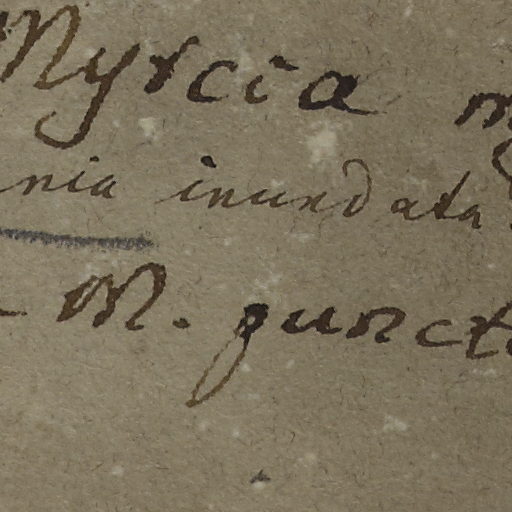 Myrcia m
nia inundata
M. puncta